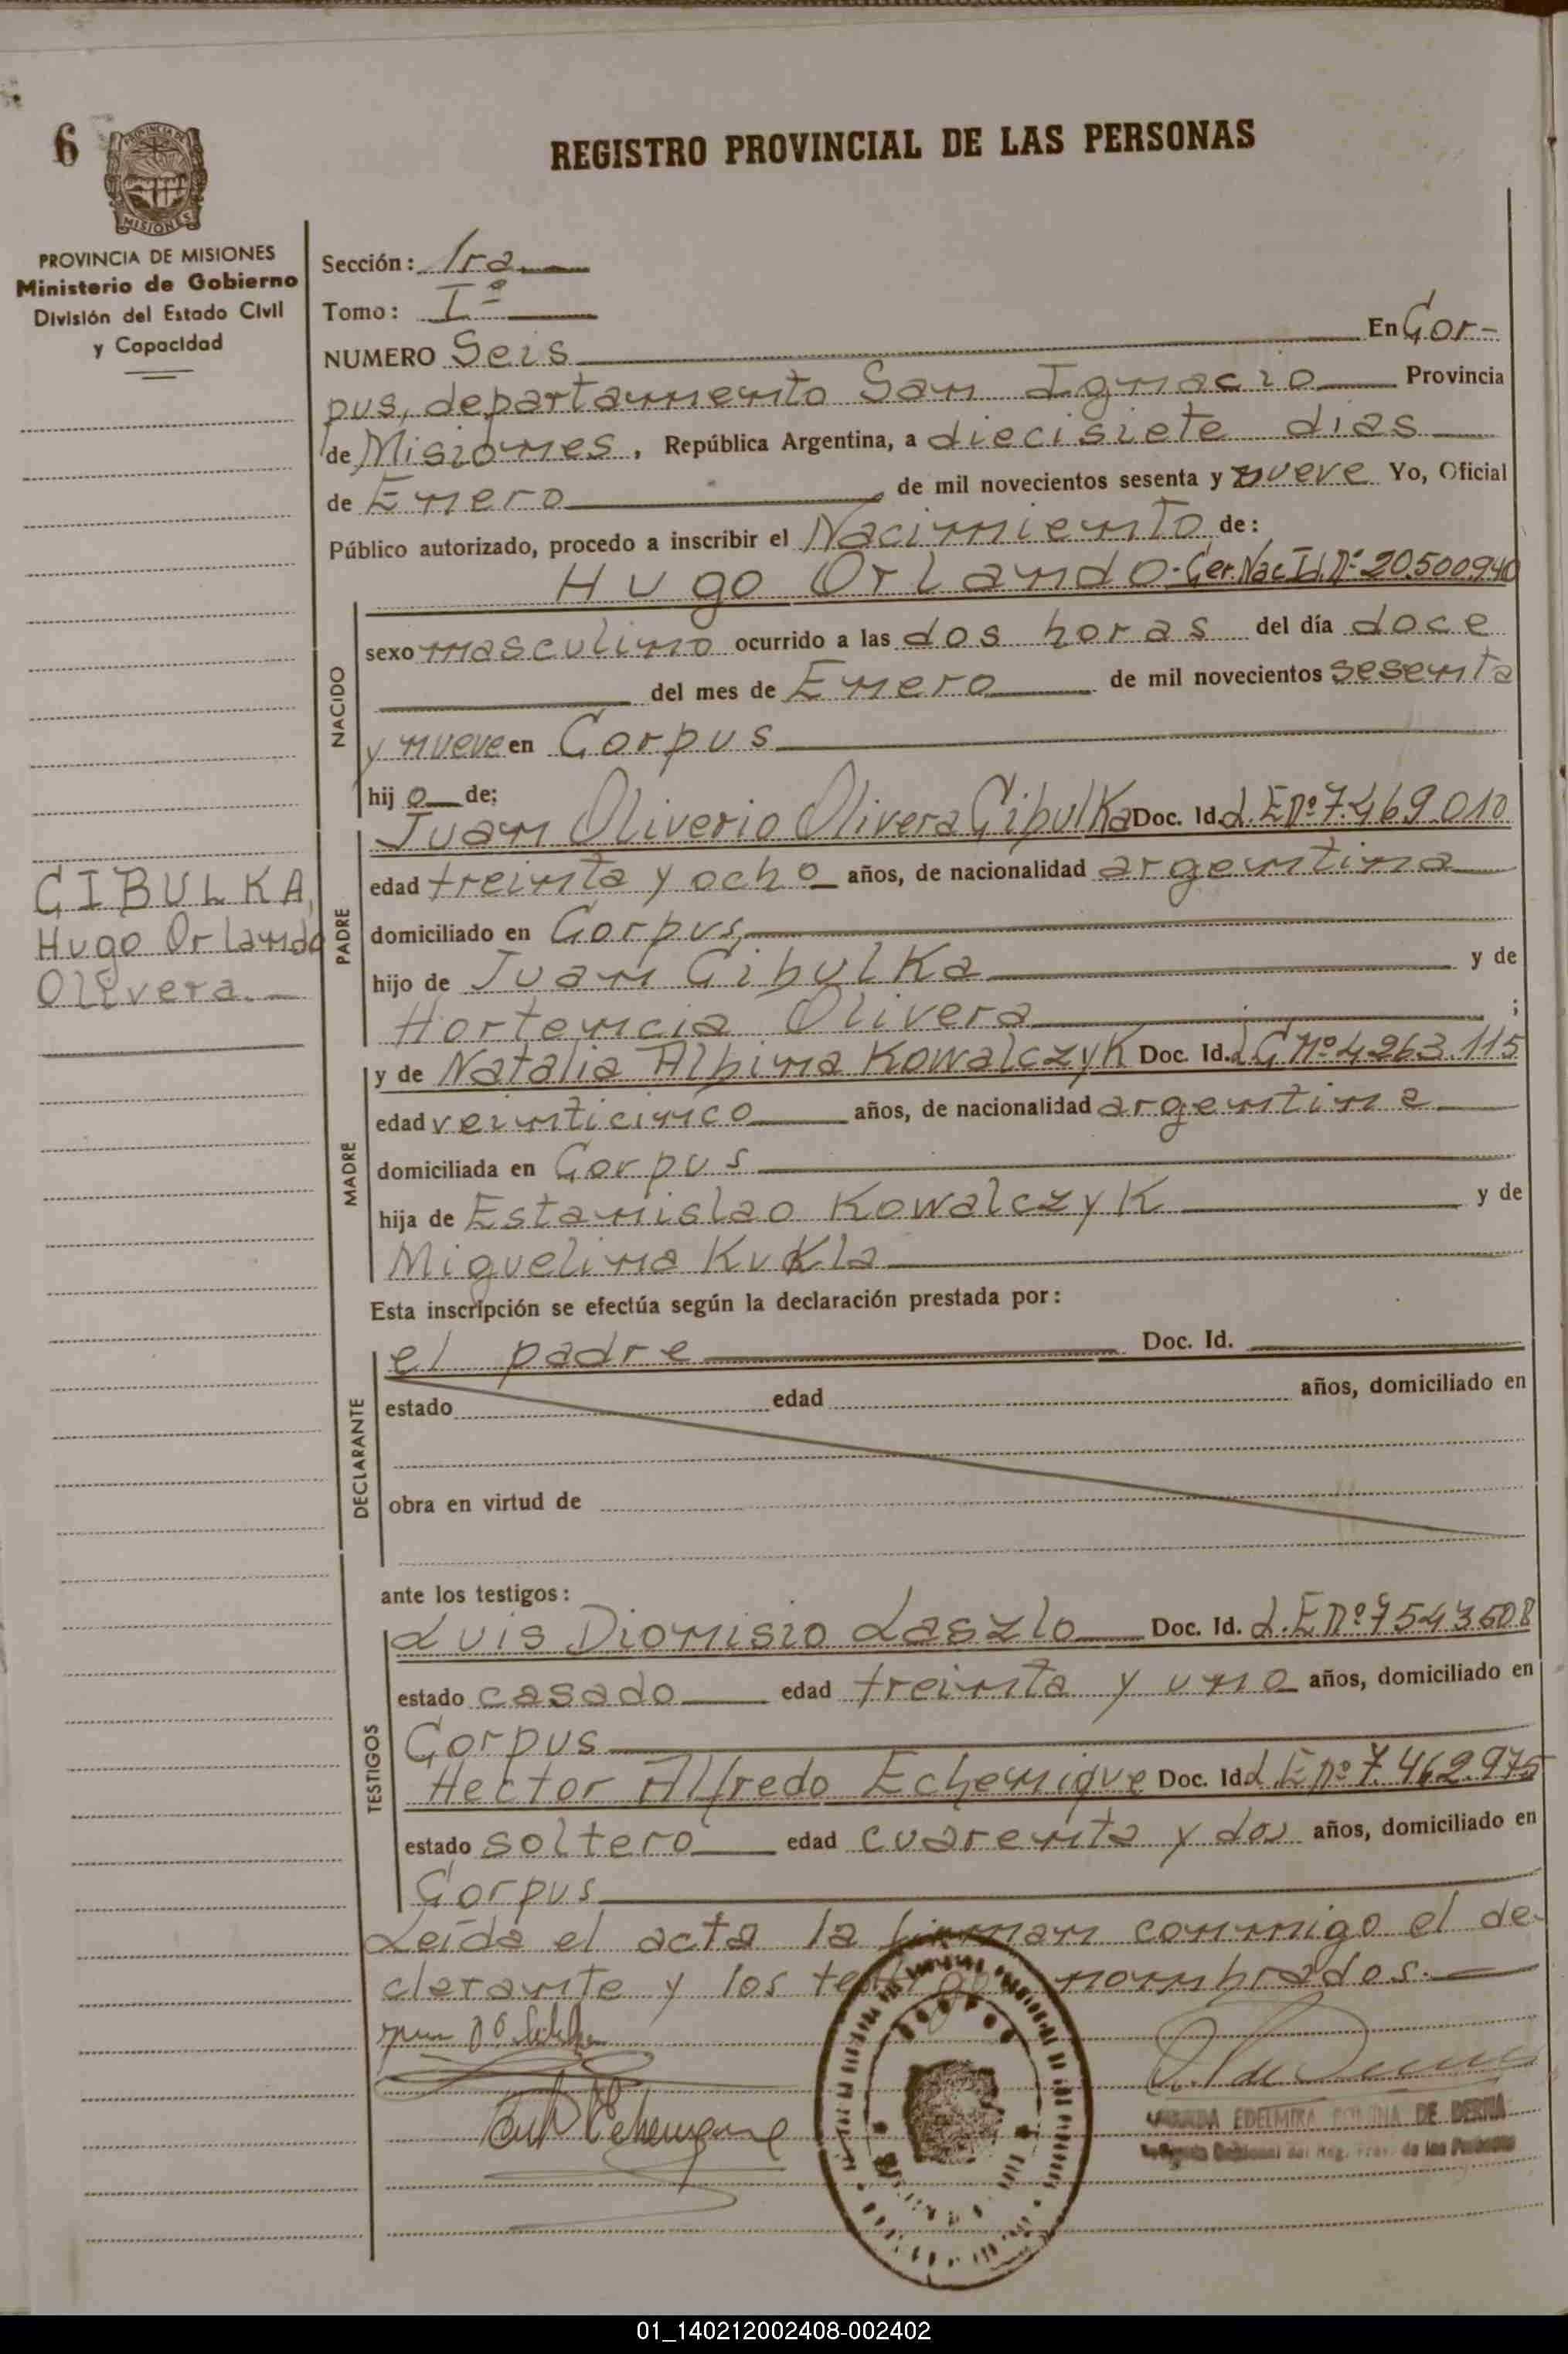 6
PROVINCIA DE
MISIONES
PROVINCIA DE MISIONES
Ministerio de Gobierno
División del Estado Civil
y Capacidad
REGISTRO PROVINCIAL DE LAS PERSONAS
Sección: 1ra
Tomo: Iº
NUMERO Seis En Cor-
pus, departamento San Ignacio Provincia
de Misiones, República Argentina, a diecisiete dias
de Enero de mil novecientos sesenta y nueve Yo, Oficial
Público autorizado, procedo a inscribir el Nacimiento de:
Hugo Orlando - Cer. Nac. Id. Nº 20.500.940
NACIDO
sexo masculino ocurrido a las dos horas del día doce
del mes de Enero de mil novecientos sesenta
y nueve en Corpus
hij o de;
PADRE
Juan Oliverio Olivera Cibulka Doc. Id. L.E Nº 7.469.010
edad treinta y ocho años, de nacionalidad argentina
domiciliado en Corpus,
hijo de Juan Cibulka y de
Hortencia Olivera ;
CIBULKA,
Hugo Orlando
Olivera.
MADRE
y de Natalia Albina Kowalczyk Doc. Id. L C Nº 4.263.115
edad veinticinco años, de nacionalidad argentina
domiciliada en Corpus
hija de Estanislao Kowalczyk y de
Miguelina Kukla
Esta inscripción se efectúa según la declaración prestada por:
DECLARANTE
el padre Doc. Id.
estado edad años, domiciliado en
obra en virtud de
ante los testigos:
TESTIGOS
Luis Dionisio Laszlo Doc. Id. L.E Nº 7543608
estado casado edad treinta y uno años, domiciliado en
Corpus
Hector Alfredo Echenique Doc. Id. L E Nº 7.462.975
estado soltero edad cuarenta y dos años, domiciliado en
Corpus
Leída el acta la firman conmigo el de-
clarante y los testigos nombrados.
EDELMIRA DE BERNA
del Reg. Prov. de las Personas
01_140212002408-002402